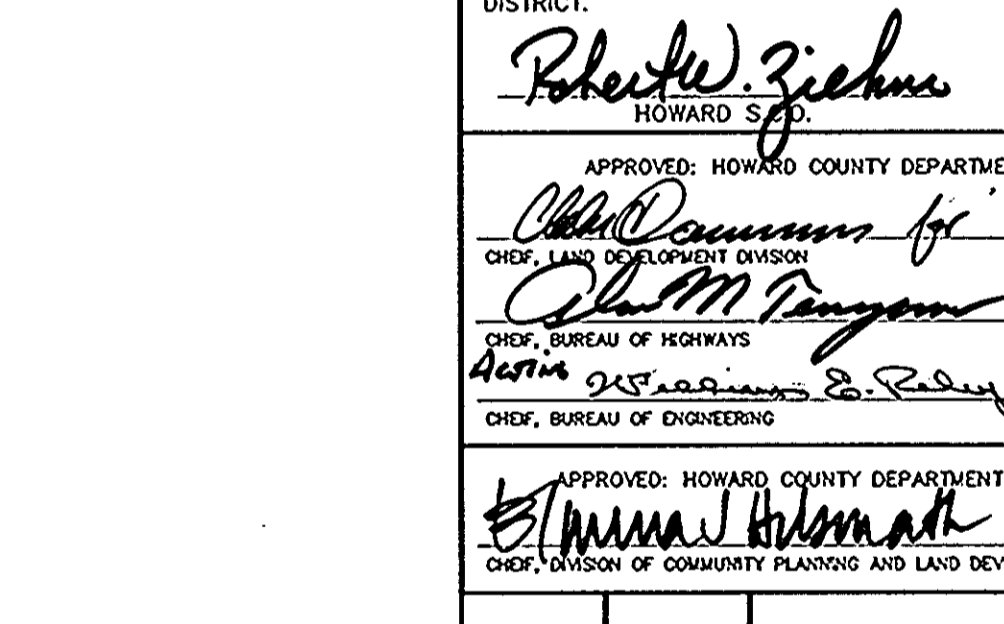 DISTRICT.
Robert W. Ziehm
HOWARD S.C.D.
APPROVED: HOWARD COUNTY DEPARTME
for
CHIEF, LAND DEVELOPMENT DIVISION
M
CHIEF, BUREAU OF HIGHWAYS
Acting
William E. Riley
CHIEF, BUREAU OF ENGINEERING
APPROVED: HOWARD COUNTY DEPARTMENT
CHIEF, DIVISION OF COMMUNITY PLANNING AND LAND DEV